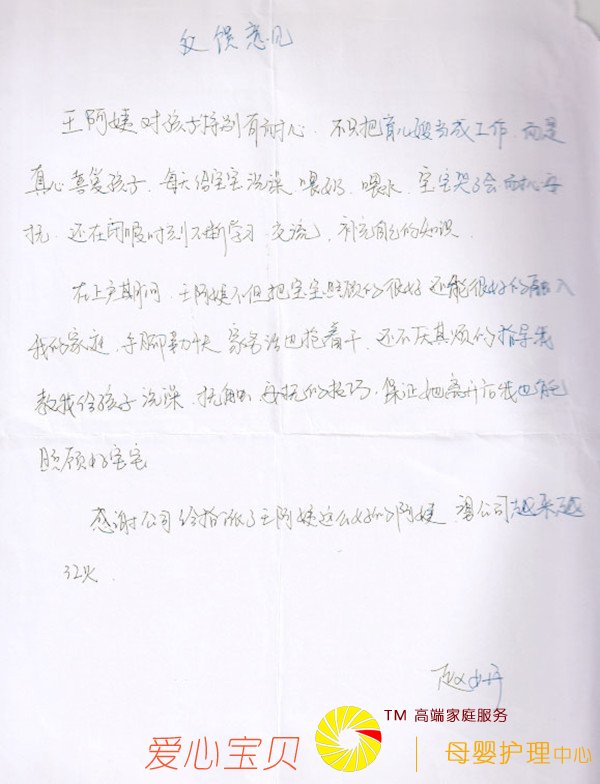 反馈意见
王阿姨对孩子特别有耐心.不只把育儿嫂当成工作,而是
真心喜爱孩子.每天给宝宝洗澡.喂奶.喂水.宝宝哭了会耐心安
抚.还在闲暇时刻不断学习.交流,补充自己的知识.
在上户期间.王阿姨不但把宝宝照顾的很好还能很好的融入
我的家庭.手脚勤快.家务活也抢着干.还不厌其烦的指导我
教我给孩子洗澡.抚触.安抚的技巧.保证她离开后我也能
照顾好宝宝
感谢公司给指派了王阿姨这么好的阿姨.愿公司越来越
红火.
TM 高端家庭服务
爱心宝贝
母婴护理中心